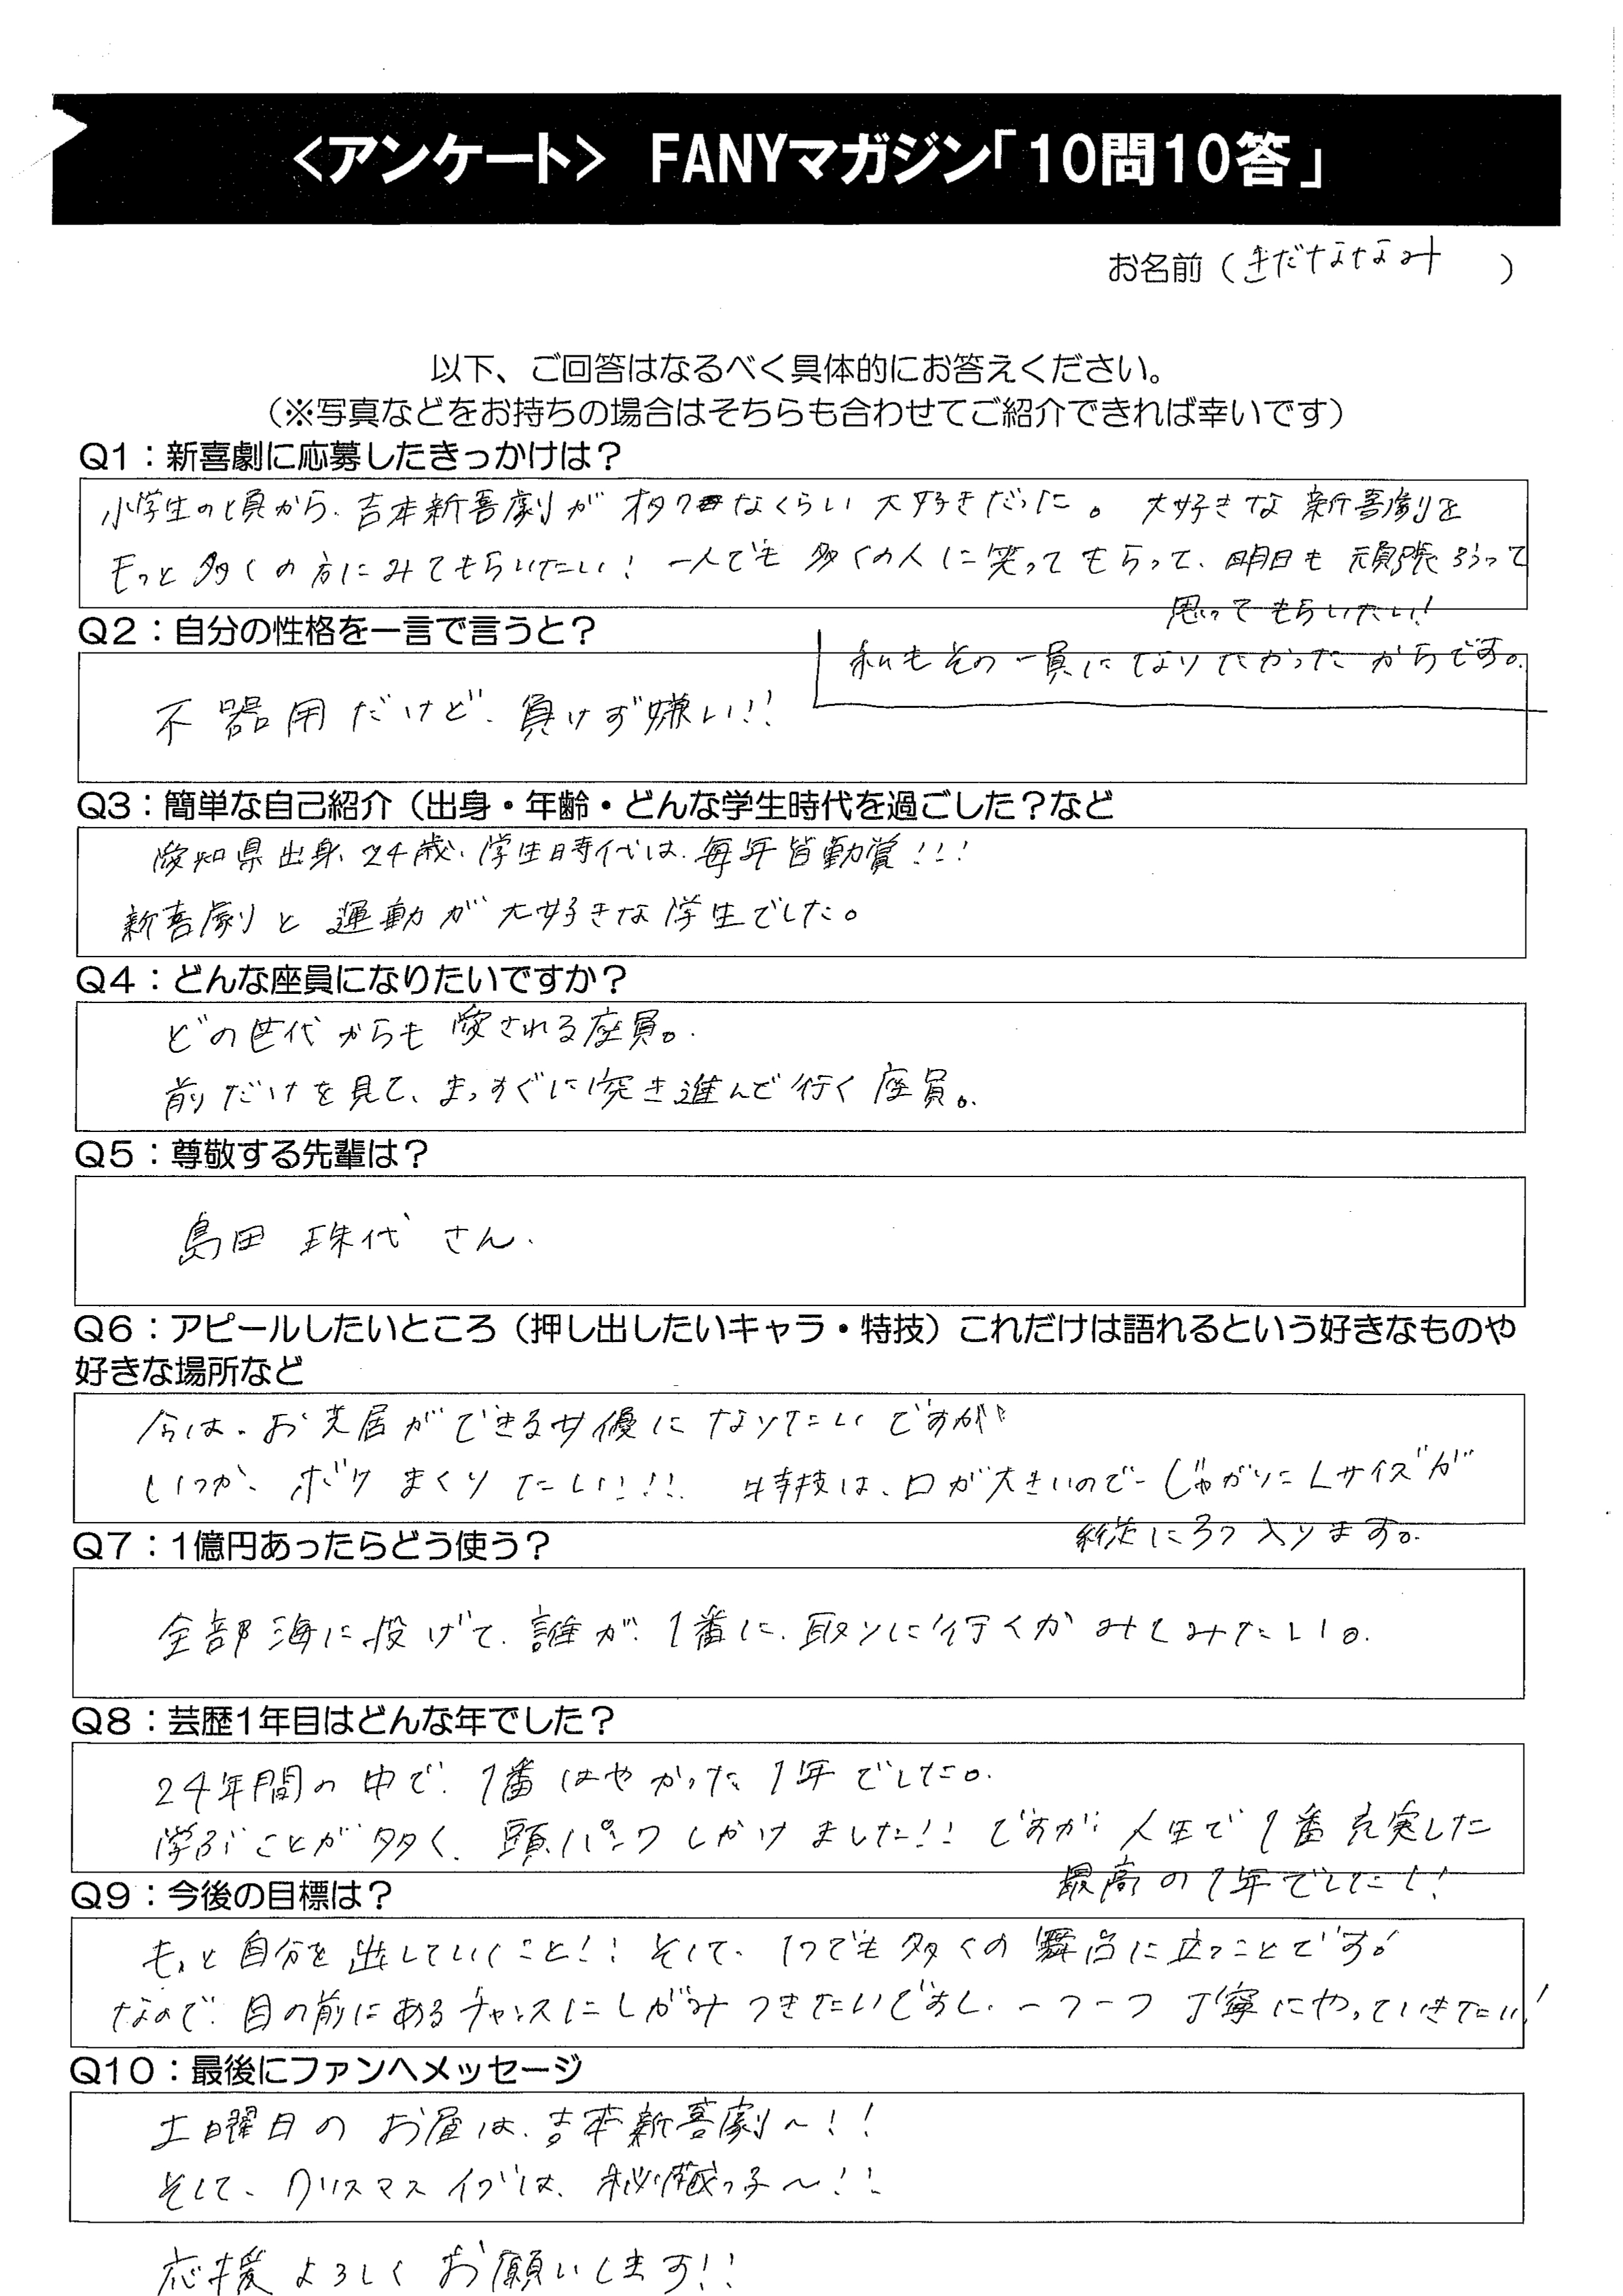 ＜アンケート＞ FANYマガジン「10問10答」
お名前（きだななみ）
以下、ご回答はなるべく具体的にお答えください。
（※写真などをお持ちの場合はそちらも合わせてご紹介できれば幸いです）
Q1：新喜劇に応募したきっかけは？
小学生の頃から、吉本新喜劇がオタクなくらい大好きだった。大好きな新喜劇を
もっと多くの方にみてもらいたい！一人でも多くの人に笑ってもらって、明日も頑張ろうって
思ってもらいたい！
私もその一員になりたかったからです。
Q2：自分の性格を一言で言うと？
不器用だけど、負けず嫌い!!
Q3：簡単な自己紹介（出身・年齢・どんな学生時代を過ごした？など
愛知県出身、24歳、学生時代は、毎年皆勤賞!!!
新喜劇と運動が大好きな学生でした。
Q4：どんな座員になりたいですか？
どの世代からも愛される座員。
前だけを見て、まっすぐに突き進んで行く座員。
Q5：尊敬する先輩は？
島田珠代さん.
Q6：アピールしたいところ（押し出したいキャラ・特技）これだけは語れるという好きなものや
好きな場所など
今は、お芝居ができる女優になりたいですが
いつか、ボケまくりたい!!! 特技は、口が大きいので じゃがりこLサイズが
縦に3つ入ります。
Q7：1億円あったらどう使う？
全部海に投げて、誰が、1番に、取りに行くかみてみたい。
Q8：芸歴1年目はどんな年でした？
24年間の中で、1番はやかった1年でした。
学ぶことが多く、頭パンクしかけました!! ですが、人生で1番充実した
最高の1年でした！
Q9：今後の目標は？
もっと自分を出していくこと!! そして、1つでも多くの舞台に立つことです！
なので、目の前にあるチャンスにしがみつきたいですし、一つ一つ丁寧にやっていきたい！
Q10：最後にファンへメッセージ
土曜日のお昼は、吉本新喜劇～!!
そして、クリスマスイブは、秘蔵っ子～!!
応援よろしくお願いします!!